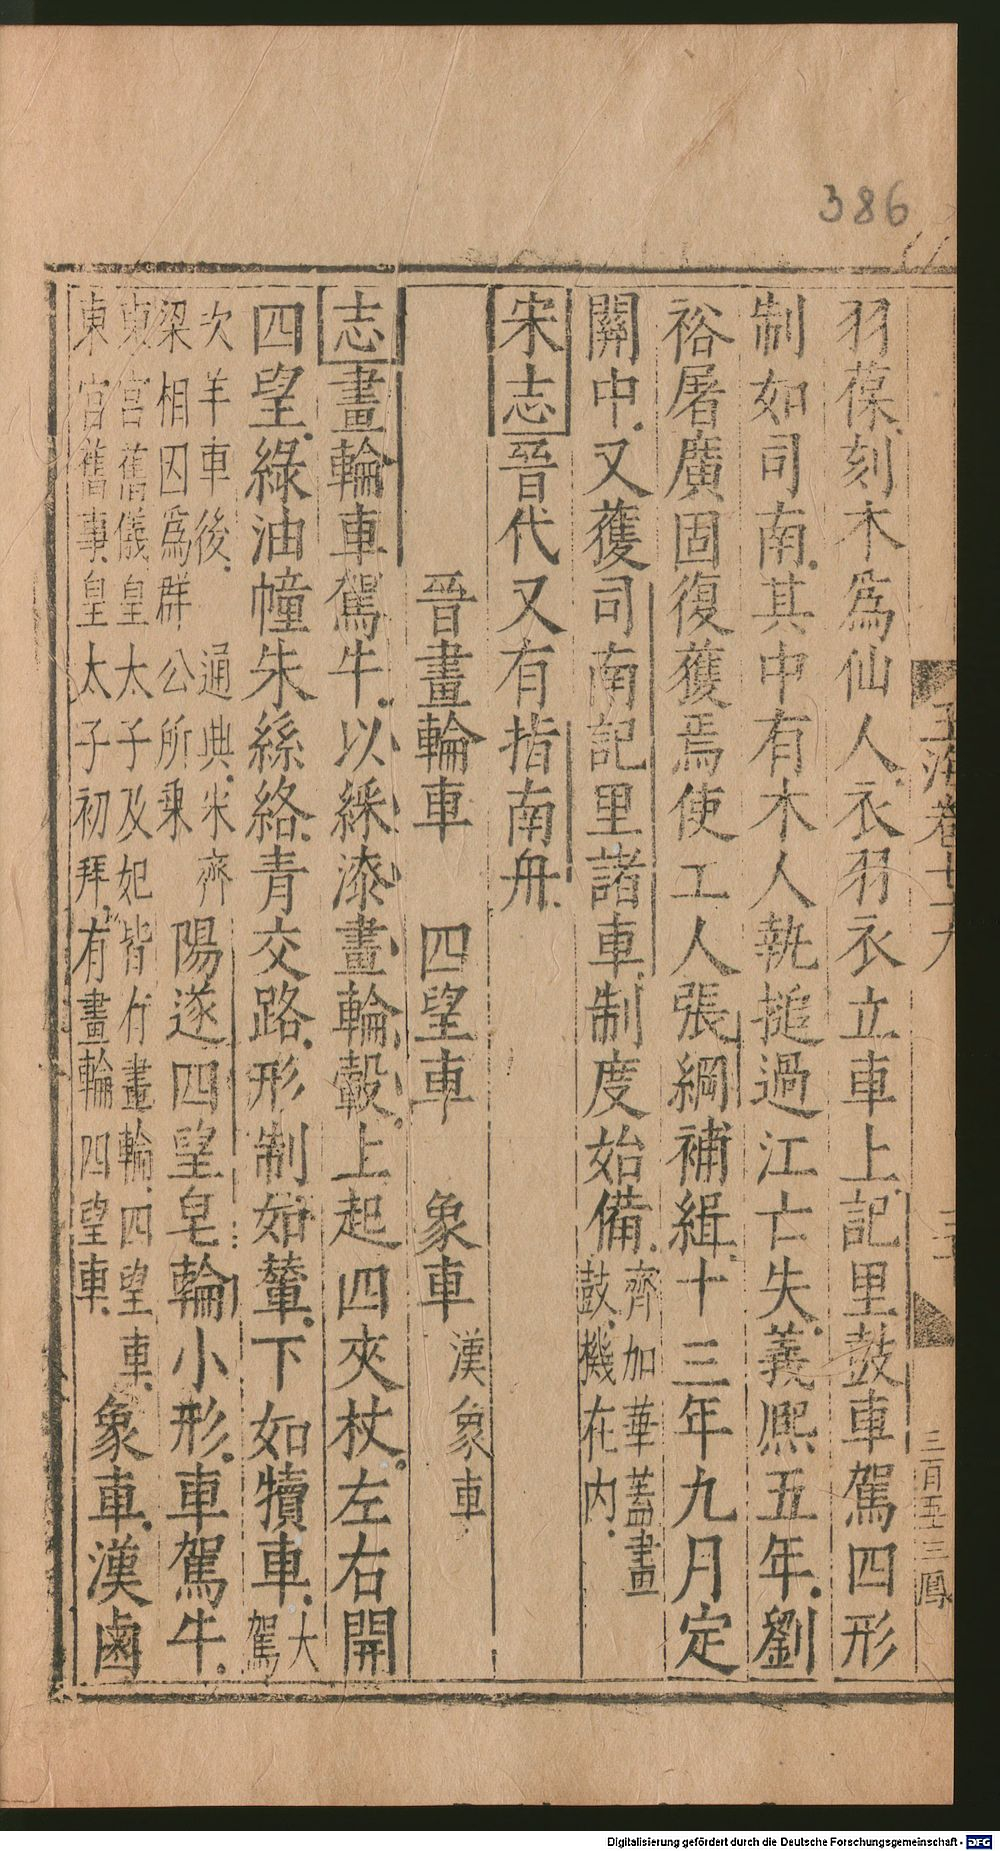 386
玉海卷七十九
三百五十三 鳳
羽葆刻木爲仙人衣羽衣立車上記里鼓車駕四形
制如司南其中有木人執搥過江亡失義熙五年劉
裕屠廣固復獲焉使工人張綱補緝十三年九月定
關中又獲司南記里諸車制度始備齊加華蓋畫
鼓機在内
宋志晉代又有指南舟
晉畫輪車 四望車 象車漢象車
志畫輪車駕牛以綵漆畫輪轂上起四夾杖左右開
四望綠油幢朱絲絡青交路形制如輦下如犢車大
駕
次羊車後 通典宋齊
梁相因爲群公所乘陽遂四望皂輪小形車駕牛
東宫舊儀皇太子及妃皆有畫輪四望車
東宫舊事皇太子初拜有畫輪四望車象車漢鹵
Digitalisierung gefördert durch die Deutsche Forschungsgemeinschaft - DFG